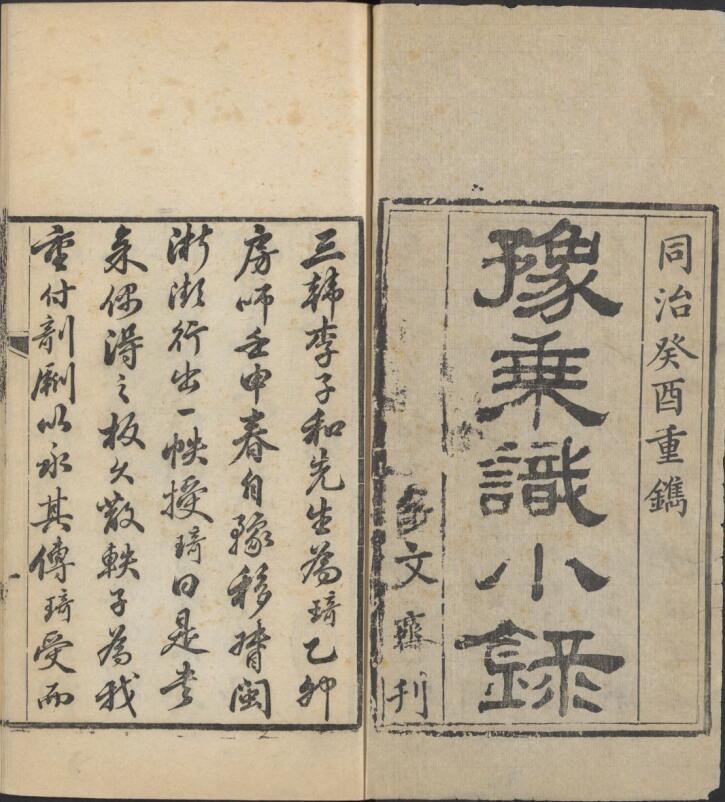 同治癸酉重鐫
豫乘識小錄
多文齋刊
三韓李子和先生為琦乙卯
房師壬申春自豫移督閩
浙瀕行出一帙授琦曰是書
余偶得之板久散軼子為我
重付剞劂以永其傳琦受而